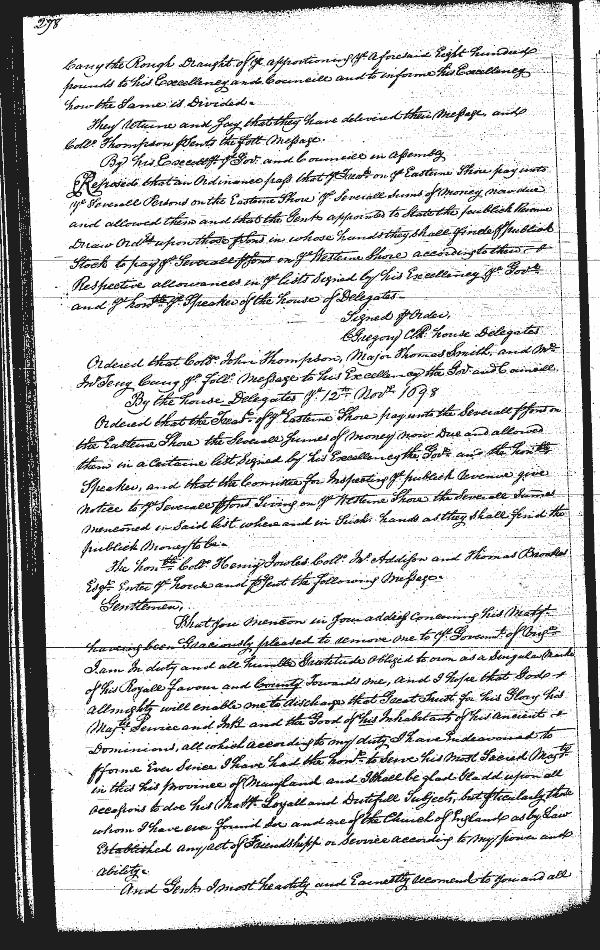 298
Carry the Rough Draught of ye apportioning ye Aforesaid Eight hundred
pounds to his Excellency and Councill and to informe his Excellency
how the Same is Divided.
They Returne and Say that they have delivered their Message, and
Coll. Thompson prsents the foll. Message.
By his Excelly ye Gov. and Councill in Assembly
Resolved that an Ordinance pass that ye Treasr on ye Eastern Shore pay unto
ye Severall Persons on the Eastern Shore ye Severall Sums of Money now due
and allowed them and that the Gents appointed to State the publick Revenue
Draw Ordrs upon those psons in whose hands they shall finde ye publick
Stock to pay ye Severall psons on ye Western Shore according to their
Respective allowances in ye lists Signed by his Excellency ye Govr
and ye honble ye Speaker of the house of Delegates
Signed p Order,
C Gregory Clk. house Delegates
Ordered that Coll. John Thompson, Major Thomas Smith, and Mr
Jno Carry ye foll. Message to his Excellency the Gov. and Councill.
By the house Delegates ye 12th Novr 1698
Ordered that the Treasr of ye Eastern Shore pay unto the Severall psons on
the Eastern Shore the Severall Summes of money now Due and allowed
them in a Certaine list Signed by his Excellency the Govr and the honble
Speaker, and that the Comittee for Inspecting ye publick Revenue give
notice to ye Severall psons Living on ye Western Shore the Severall Summs
mentioned in Said list where and in Such hands as they shall find the
publick Money to be.
The honble Coll. Henry Jowles Coll. Jno Addison and Thomas Brooke
Esqr. Enter ye house and prsent the following Message.
Gentlemen,
What you mention in your address Concerning his Matys
having been Graciously pleased to remove me to ye Governmt of
I am in duty and all humble Gratitude obliged to own as a Singular Marke
of his Royall favour and bounty Towards me, and I hope that God
allmighty will enable me to discharge that Great Trust for his Glory his
Majtys Service and Intt and the Good of his Inhabitants of his Ancient
Dominions, all which according to my duty I have Endeavoured to
pforme Ever Since I have had the honr to Serve his Most Sacred Majty
in this his province of Maryland and Shall be glad upon all
occasions to doe his Matys Loyall and Dutifull Subjects, but pticularly those
whom I have ever found See and are of the Church of England as by Law
Established any act of Friendshipp or Service according to my power and
ability.
And Gents I most heartily and Earnestly recomend to you and all